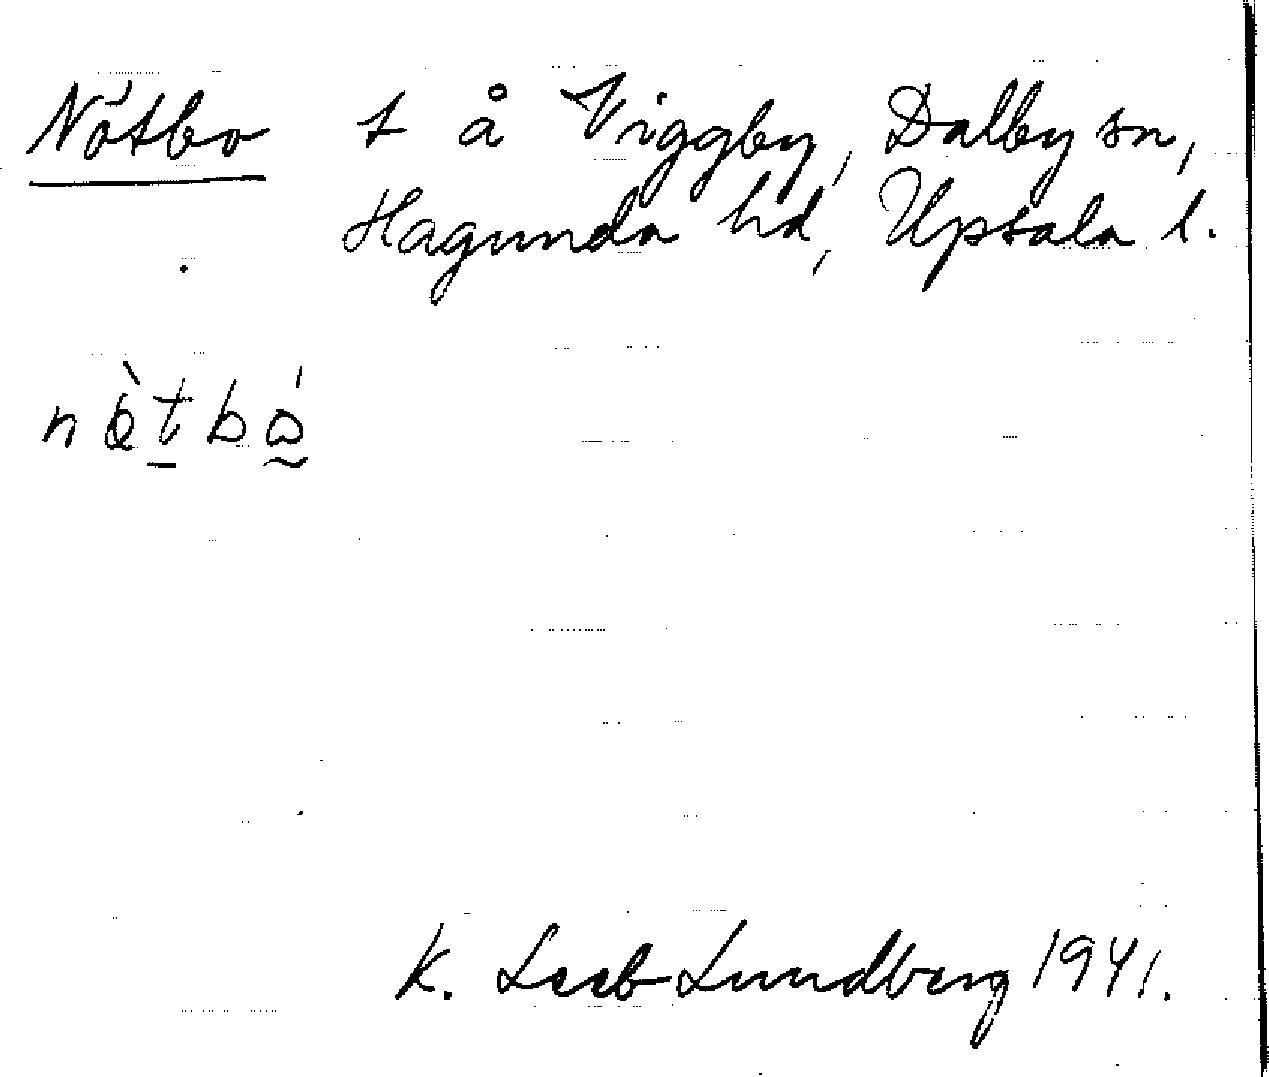 Nötbo t å Viggby, Dalby sn,
Hagunda hd, Upsala l.
K. Leeb-Lundberg 1941.